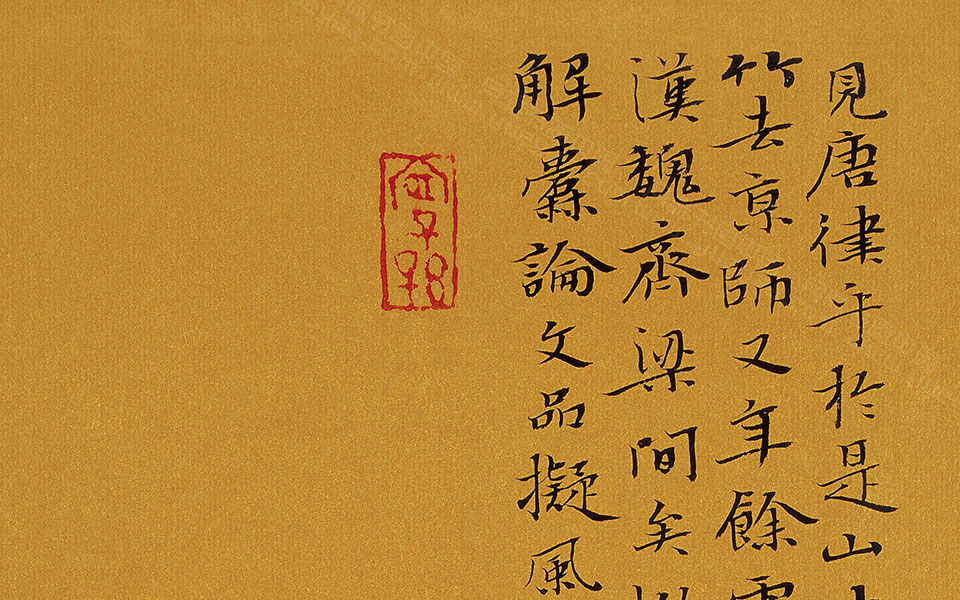 見唐律乎於是山
竹去京師又年餘
漢魏齊梁間矣
解囊論文品擬風